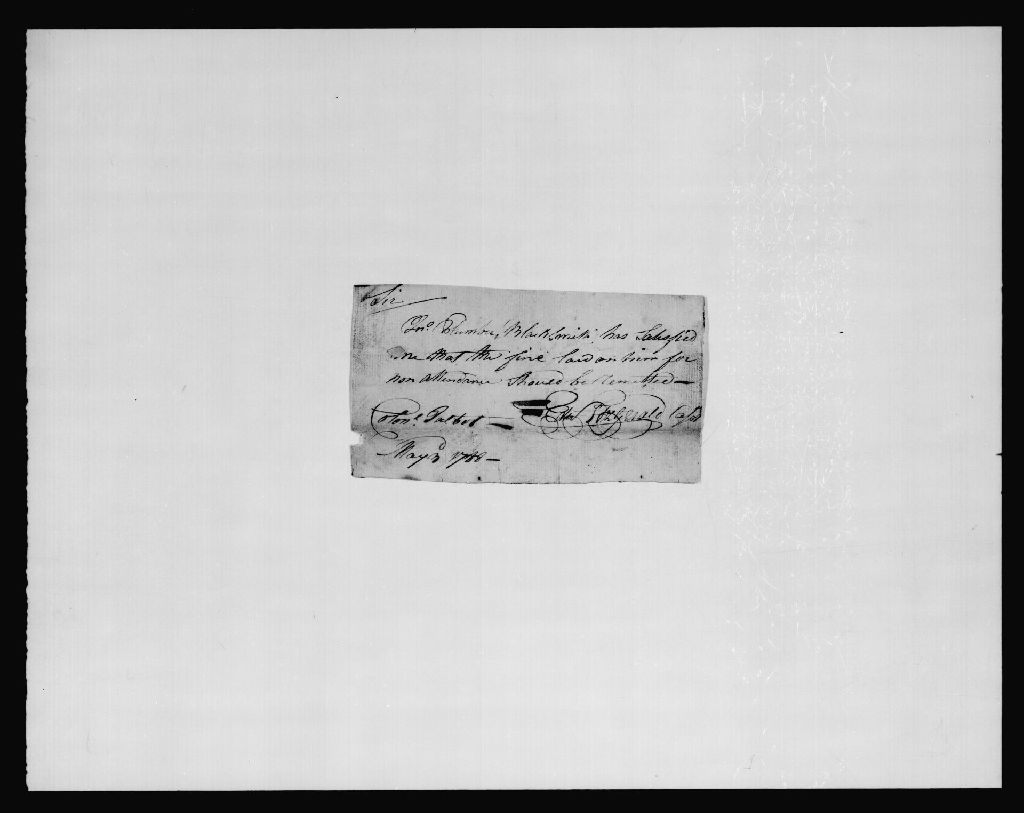 Sir
Jno. Plumbe, Blacksmith has Satisfied
me that the fine laid on him for
non attendance Should be Remitted —
Colonl. Talbot —
May 3d 1788 —